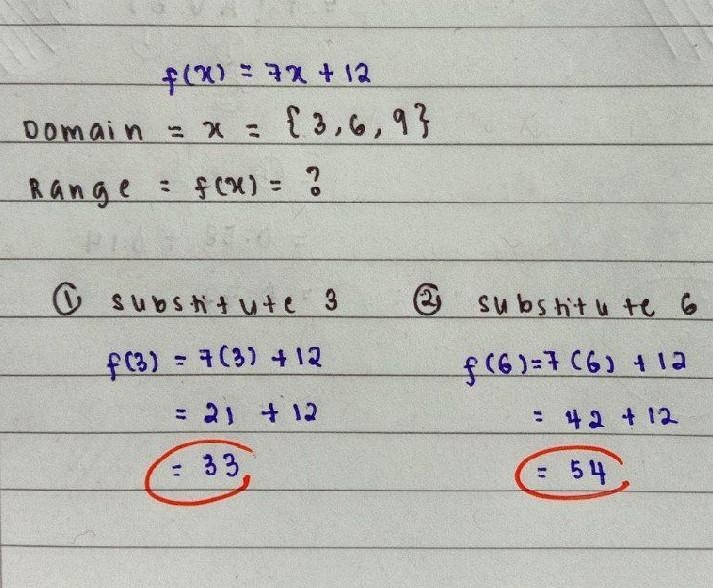 f(x) = 7x + 12
Domain = x = {3, 6, 9}
Range = f(x) = ?
① substitute 3
f(3) = 7(3) + 12
= 21 + 12
= 33
② substitute 6
f(6) = 7(6) + 12
= 42 + 12
= 54